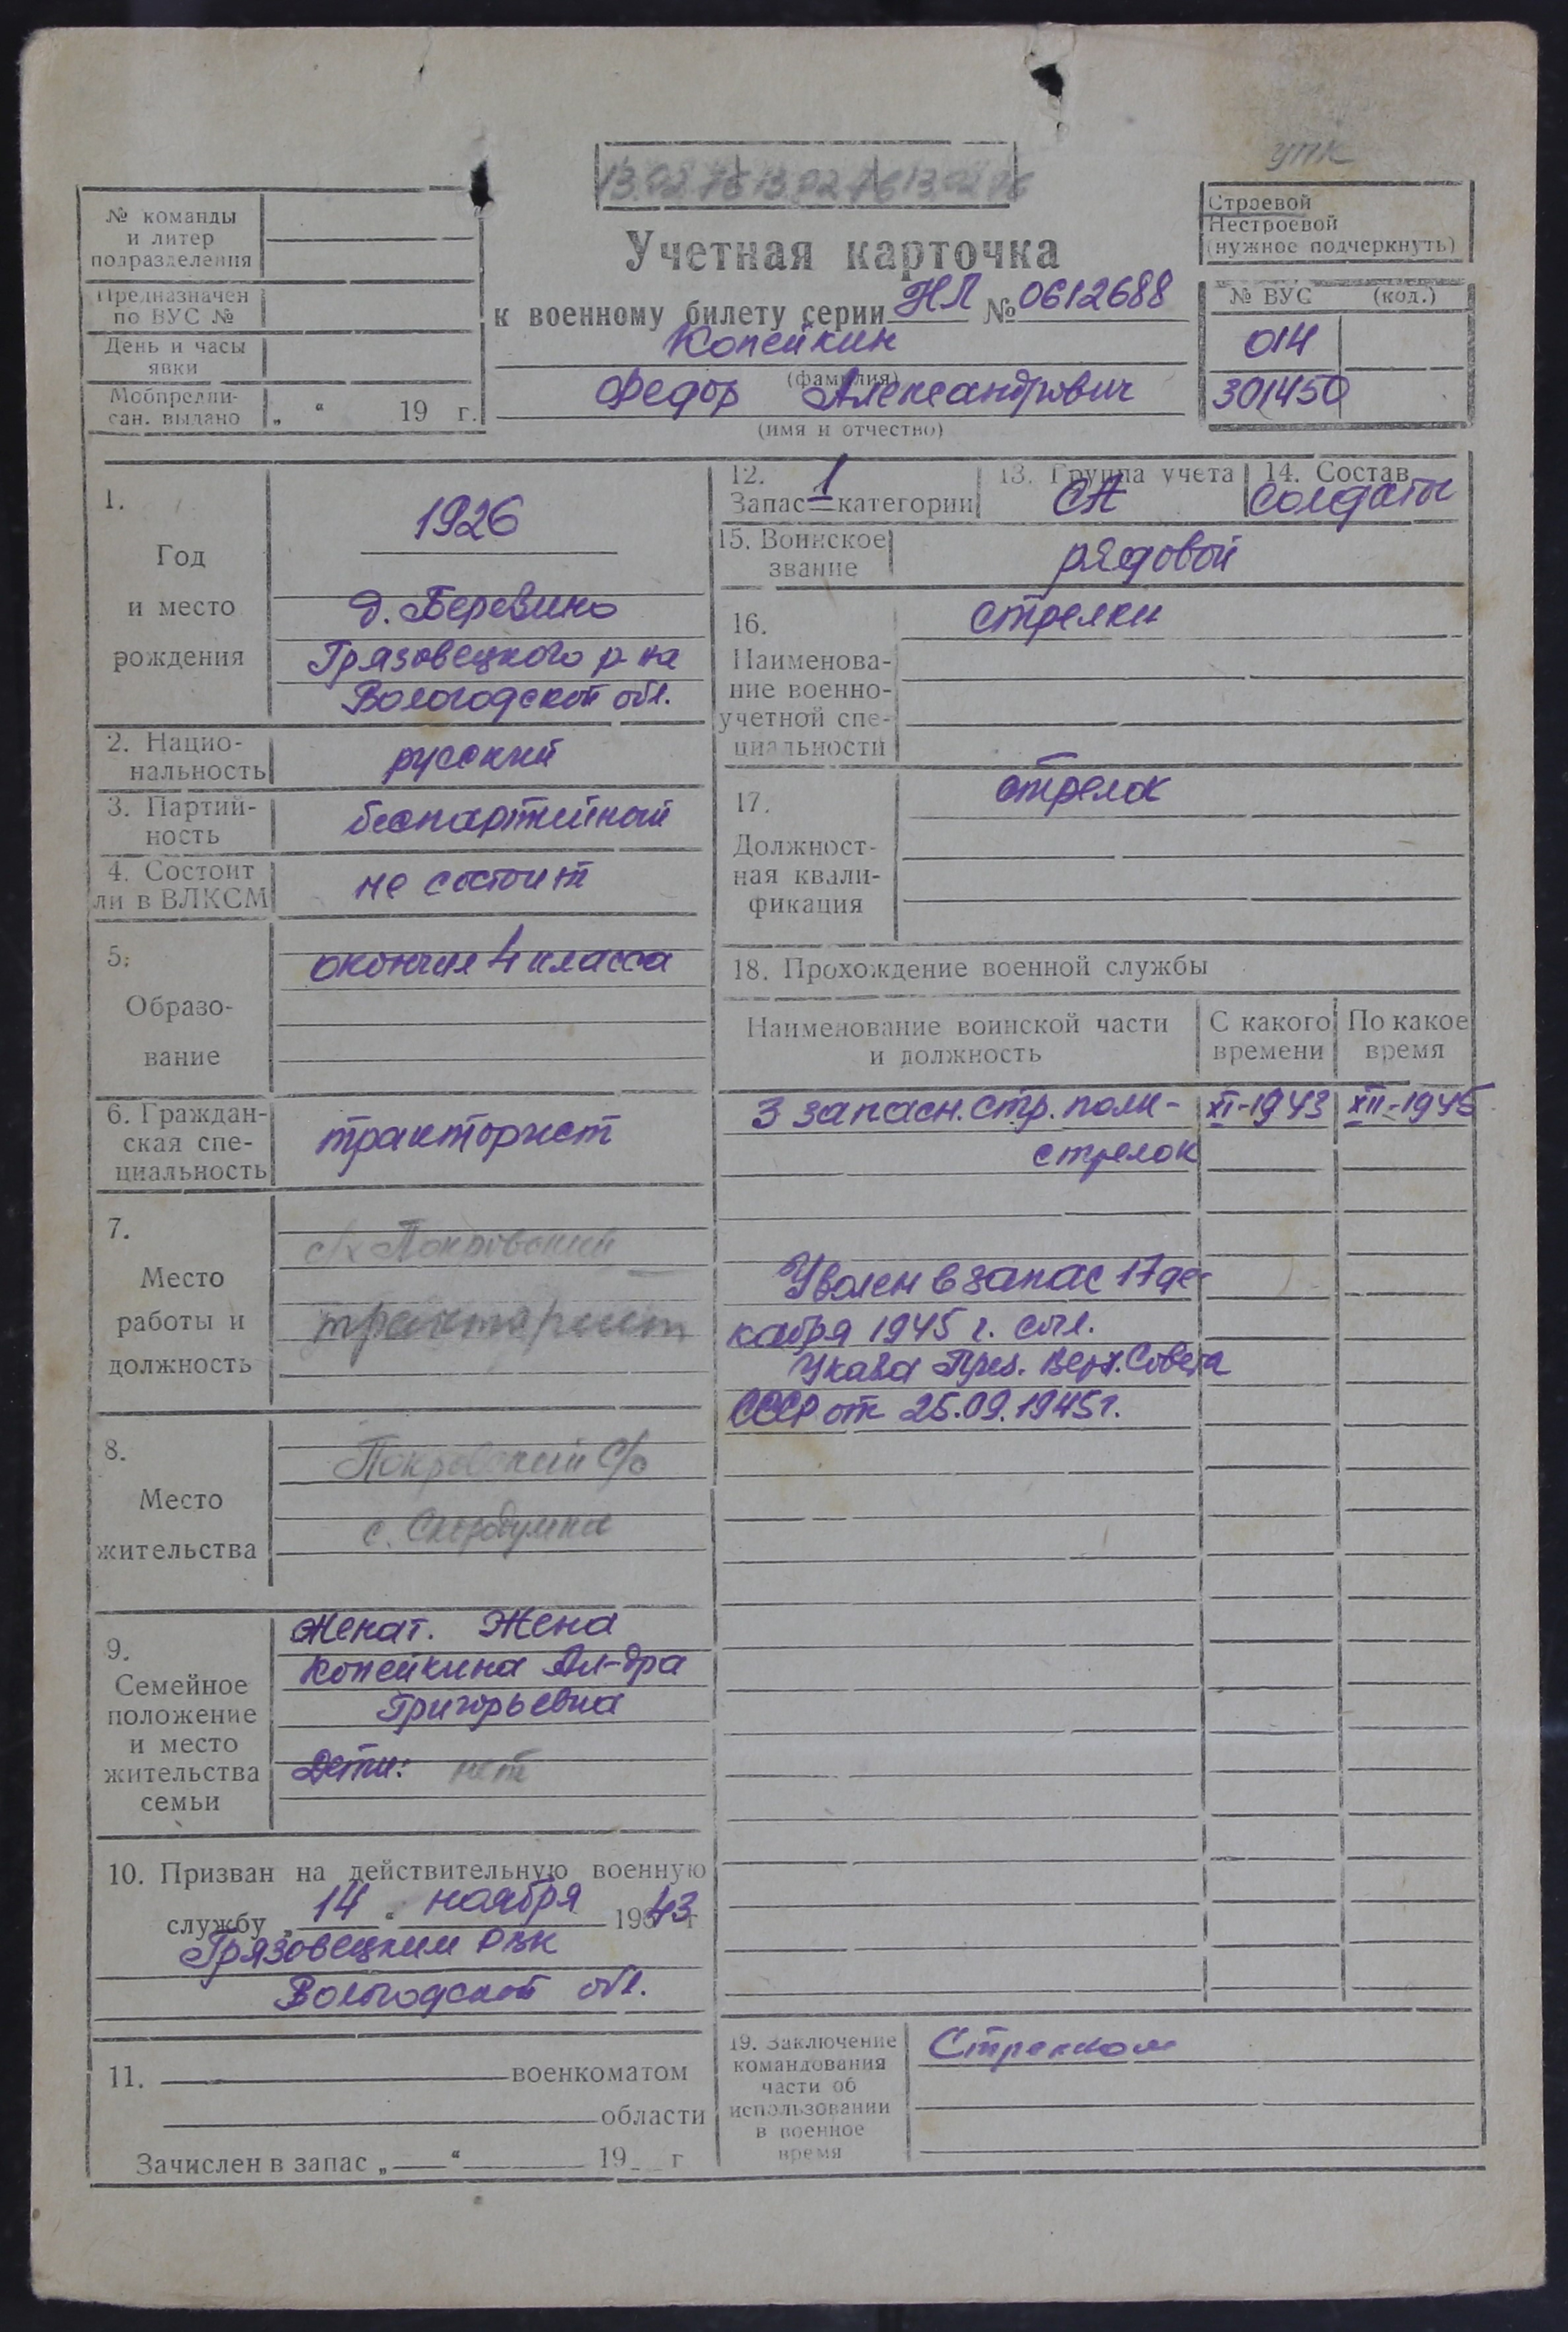 упк
13.02.76 13.02.76 13.02.76
№ команды
и литер
подразделения
Предназначен
по ВУС №
День и часы
явки
Мобпредпи-
сан. выдано „ “ 19 г.
Учетная карточка
к военному билету серии НЛ № 0612688
Копейкин
(фамилия)
Федор Александрович
(имя и отчество)
Строевой
Нестроевой
(нужное подчеркнуть)
№ ВУС (код.)
014
301450
1.
Год
и место
рождения
1926
д. Беревино
Грязовецкого р-на
Вологодской обл.
2. Нацио-
нальность
русский
3. Партий-
ность
беспартийный
4. Состоит
ли в ВЛКСМ
не состоит
5.
Образо-
вание
окончил 4 класса
6. Граждан-
ская спе-
циальность
тракторист
7.
Место
работы и
должность
с/х Покровский
тракторист
8.
Место
жительства
Покровский с/с
с.
9.
Семейное
положение
и место
жительства
семьи
Женат. Жена
Копейкина Ал-дра
Григорьевна
Дети: нет
10. Призван на действительную военную
службу „ 14 “ ноября 1943 г
Грязовецким РВК
Вологодской обл.
11. военкоматом
области
Зачислен в запас „ “ 19 г
12. 1
Запас категории
13. Группа учета
СА
14. Состав
солдаты
15. Воинское
звание
рядовой
16.
Наименова-
ние военно-
учетной спе-
циальности
стрелки
17.
Должност-
ная квали-
фикация
стрелок
18. Прохождение военной службы
Наименование воинской части
и должность
С какого
времени
По какое
время
3 запасн. стр. полк - XI-1943 XII-1945
стрелок
Уволен в запас 17 де-
кабря 1945 г. согл.
Указа През. Верх. Совета
СССР от 25.09.1945 г.
19. Заключение
командования
части об
использовании
в военное
время
Стрелком